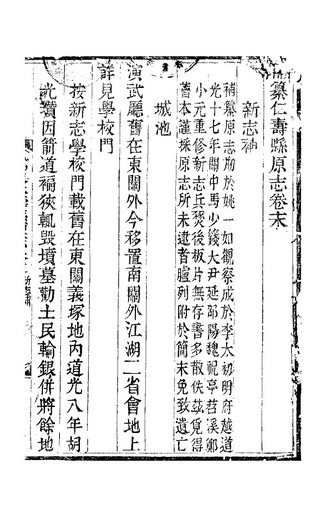 纂仁壽縣原志卷末
新志補
補纂原志刱於姚一如觀察成於李太初明府越道
光十七年關中馬少錢大尹延邵陽魏龍亭若溪鄒
小元重修新志兵燹後板片無存書多散佚茲覓得
舊本謹採原志所未逮者臚列附於簡末免致遺亡
城池
演武廳舊在東關外今移置南關外江湖二省會地上
詳見學校門
按新志學校門載舊在東關義塚地內道光八年胡
光瓚因箭道褊狹輒毀墳墓勸土民輸銀併將餘地